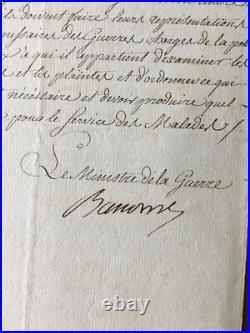 ils doivent faire leurs représentations
missaires des Guerres charges de la pol
x à qui il appartient d'examiner les
et les plaintes et d'ordonner ce qui
nécessaire et devois produire quel
pour le service des Malades /.
Le Ministre de la Guerre